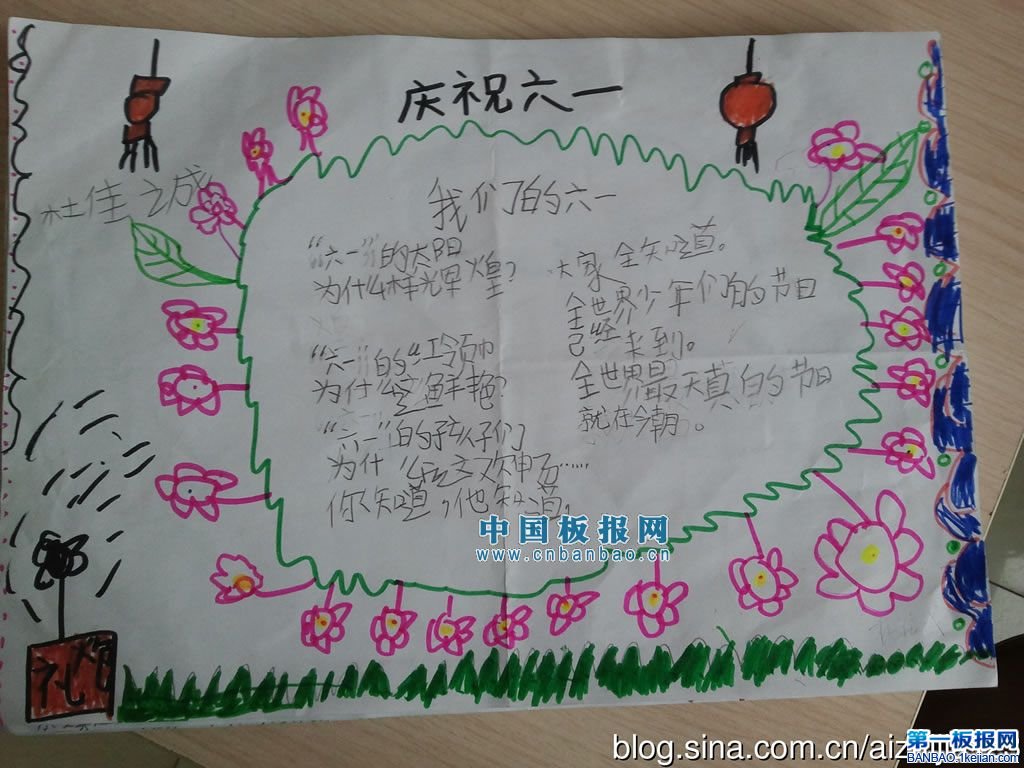 庆祝六一
杜佳之成
我们的六一
“六一”的太阳
为什么样光辉煌？
“六一”的“红领巾
为什么空鲜艳？
“六一”的孩仔们
为什
你知道，他知道。
大家全知道。
全世界少年们的节日
已经来到。
全世界最天真的节日
就在今朝。
礼炮
中国板报网
www.cnbanbao.cn
第一板报网
BANBAO.1kejian.com
blog.sina.com.cn/aiz